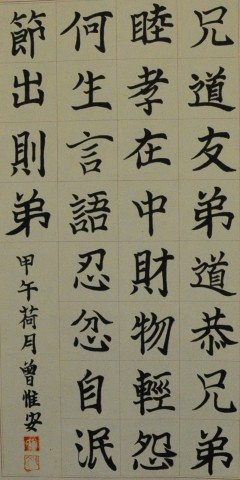 兄道友弟道恭兄弟
睦孝在中財物輕怨
何生言語忍忿自泯
節出則弟
甲午荷月曾惟安